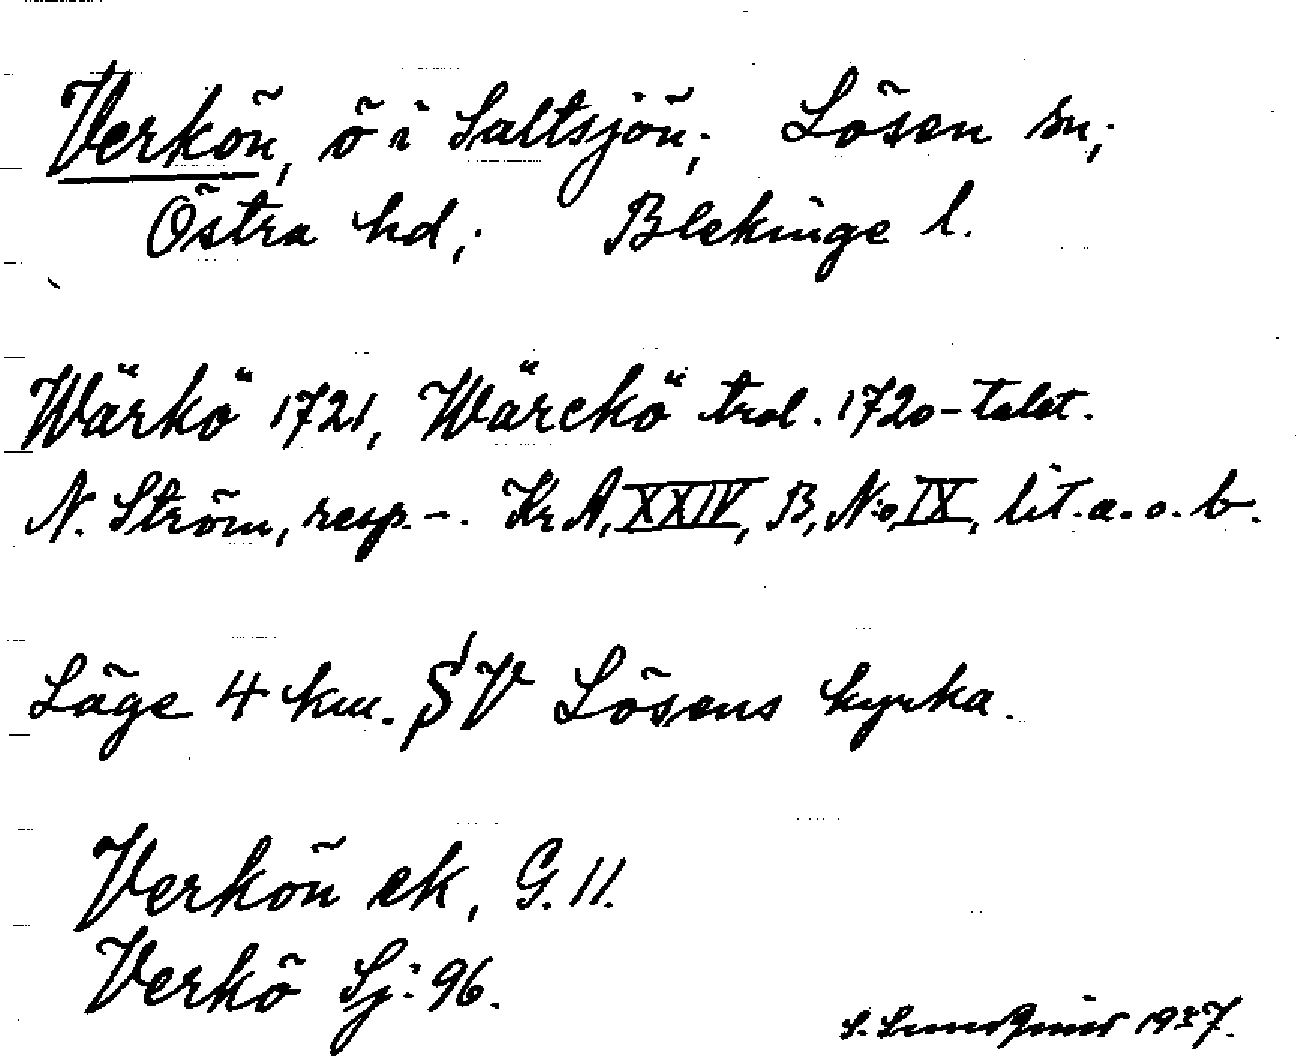 Verkön, ö i Saltsjön; Lösen sn;
Östra hd; Blekinge l.
Wärkö 1721, Wärckö trol. 1720-talet.
N. Ström, resp. -. Kr A, XXIV, B, N:o IX, lit. a. o. b.
Läge 4 km. SV Lösens kyrka.
Verkön ek, G. 11.
Verkö Sj: 96.
S. 1937.